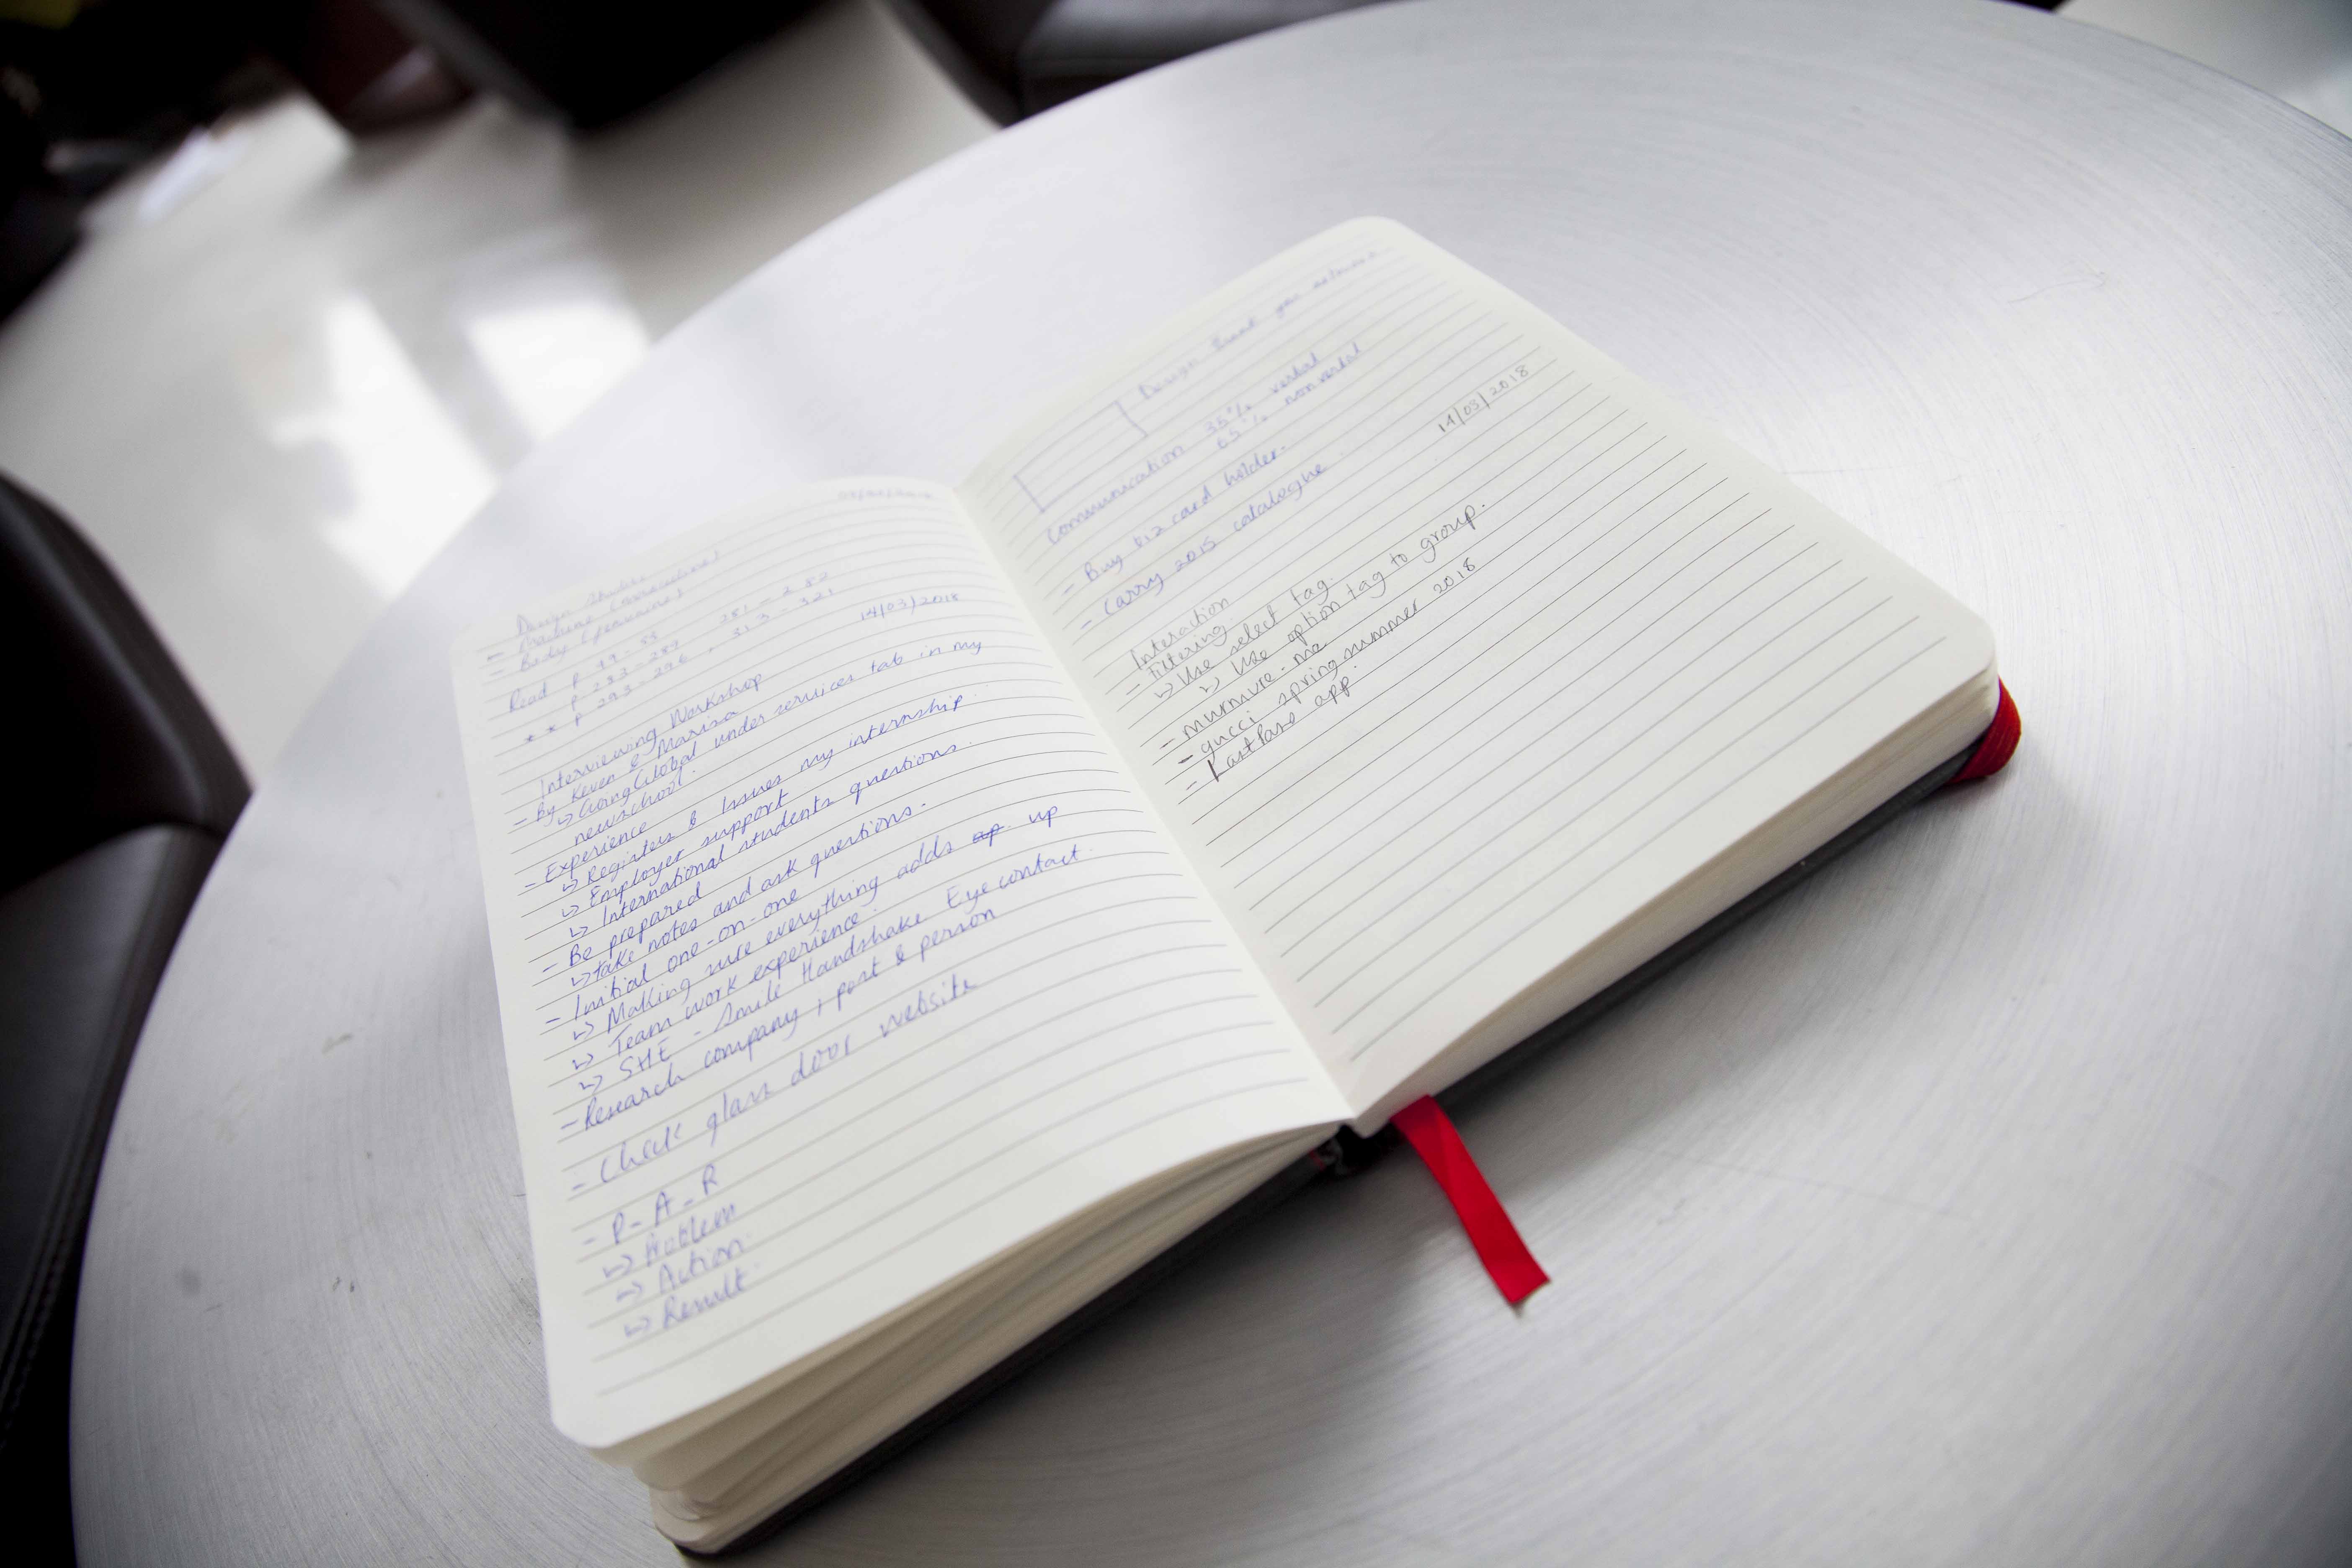 Design
Body (feminine)
Read P 49-53 281-282
P 283-289 313-321
** P 293-296,
14/03/2018
Interviewing Workshop
- By Keven & Marisa
↳ GoingGlobal under services tab in my
newschool.
- Experience
↳ Registers & Issues my internship.
↳ Employer support
↳ International students questions.
- Be prepared
↳ take notes and ask questions.
- Initial one-on-one
↳ Making sure everything adds up up
↳ Team work experience.
↳ SHE - Smile Handshake Eye contact.
- Research company ; past & person
- Check glass door website
- P-A-R
↳ Problem
↳ Action
↳ Result
Design
Communication 35% verbal
65% nonverbal
- Buy biz card holder.
- Carry 2015 cataloghe.
14/03/2018
Interaction
- Filtering
↳ Use select tag.
↳ Use option tag to group.
- murmure.me
- gucci spring summer 2018
- LastPass app.